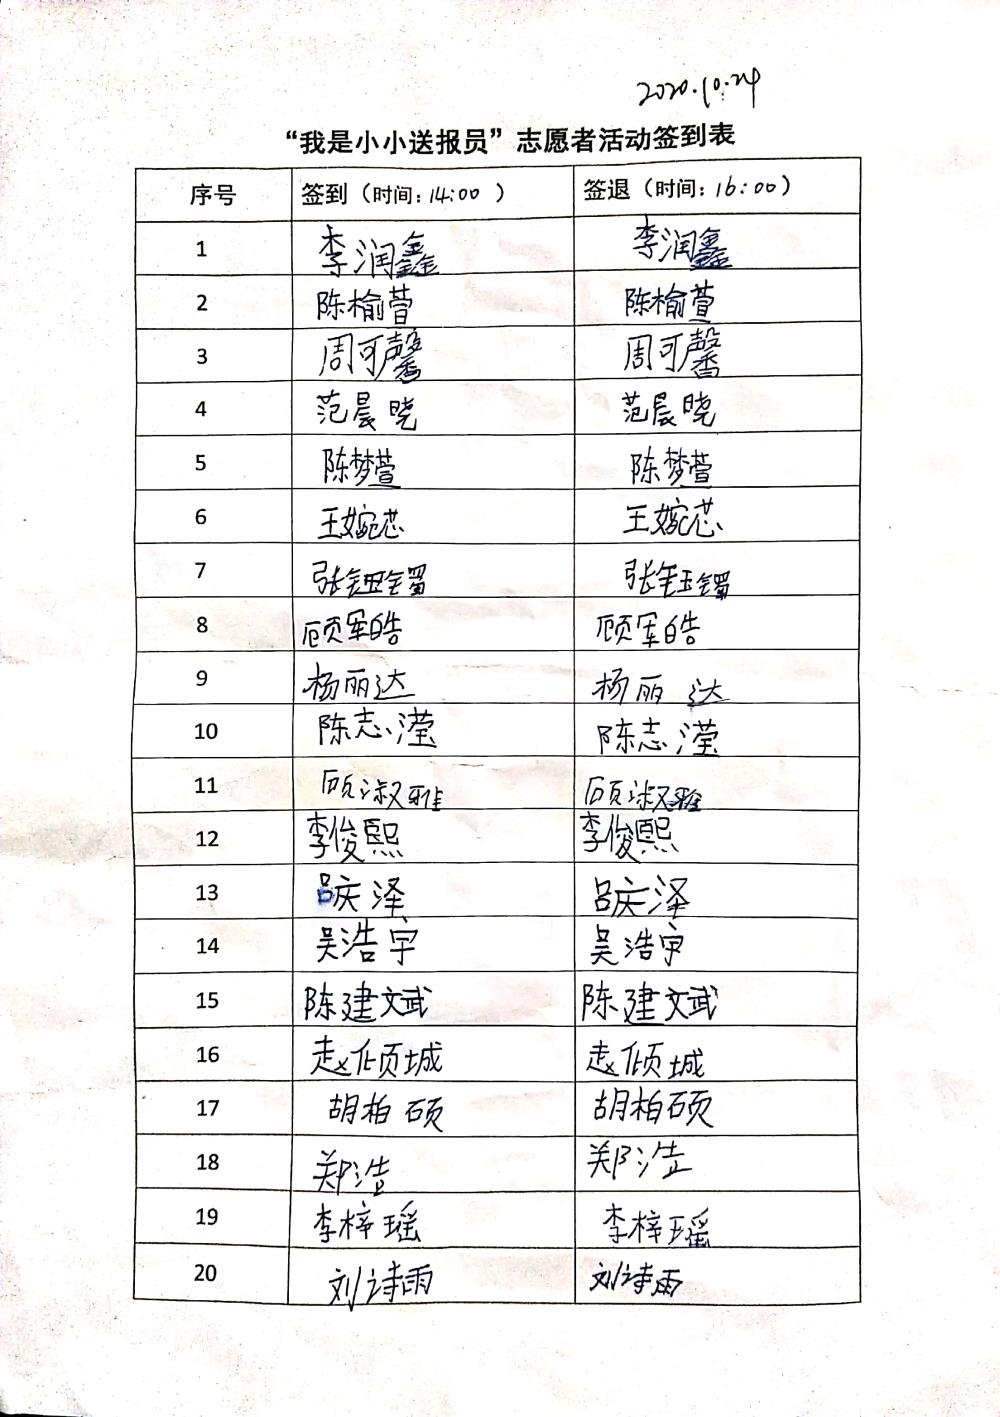 2020.10.24
“我是小小送报员”志愿者活动签到表
序号 签到（时间：14:00 ） 签退（时间：16:00）
1 李润鑫 李润鑫
2 陈榆萱 陈榆萱
3 周可馨 周可馨
4 范晨晓 范晨晓
5 陈梦萱 陈梦萱
6 王婉芯 王婉芯
7 张钰镯 张钰镯
8 顾军皓 顾军皓
9 杨丽达 杨丽达
10 陈志滢 陈志滢
11 顾淑雅 顾淑雅
12 李俊熙 李俊熙
13 吕庆泽 吕庆泽
14 吴浩宇 吴浩宇
15 陈建文武 陈建文武
16 赵倾城 赵倾城
17 胡柏硕 胡柏硕
18 郑浩 郑浩
19 李梓瑶 李梓瑶
20 刘诗雨 刘诗雨